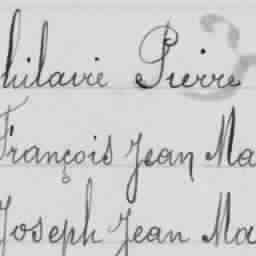 hilaire Pierre
François Jean Ma
Joseph Jean Ma